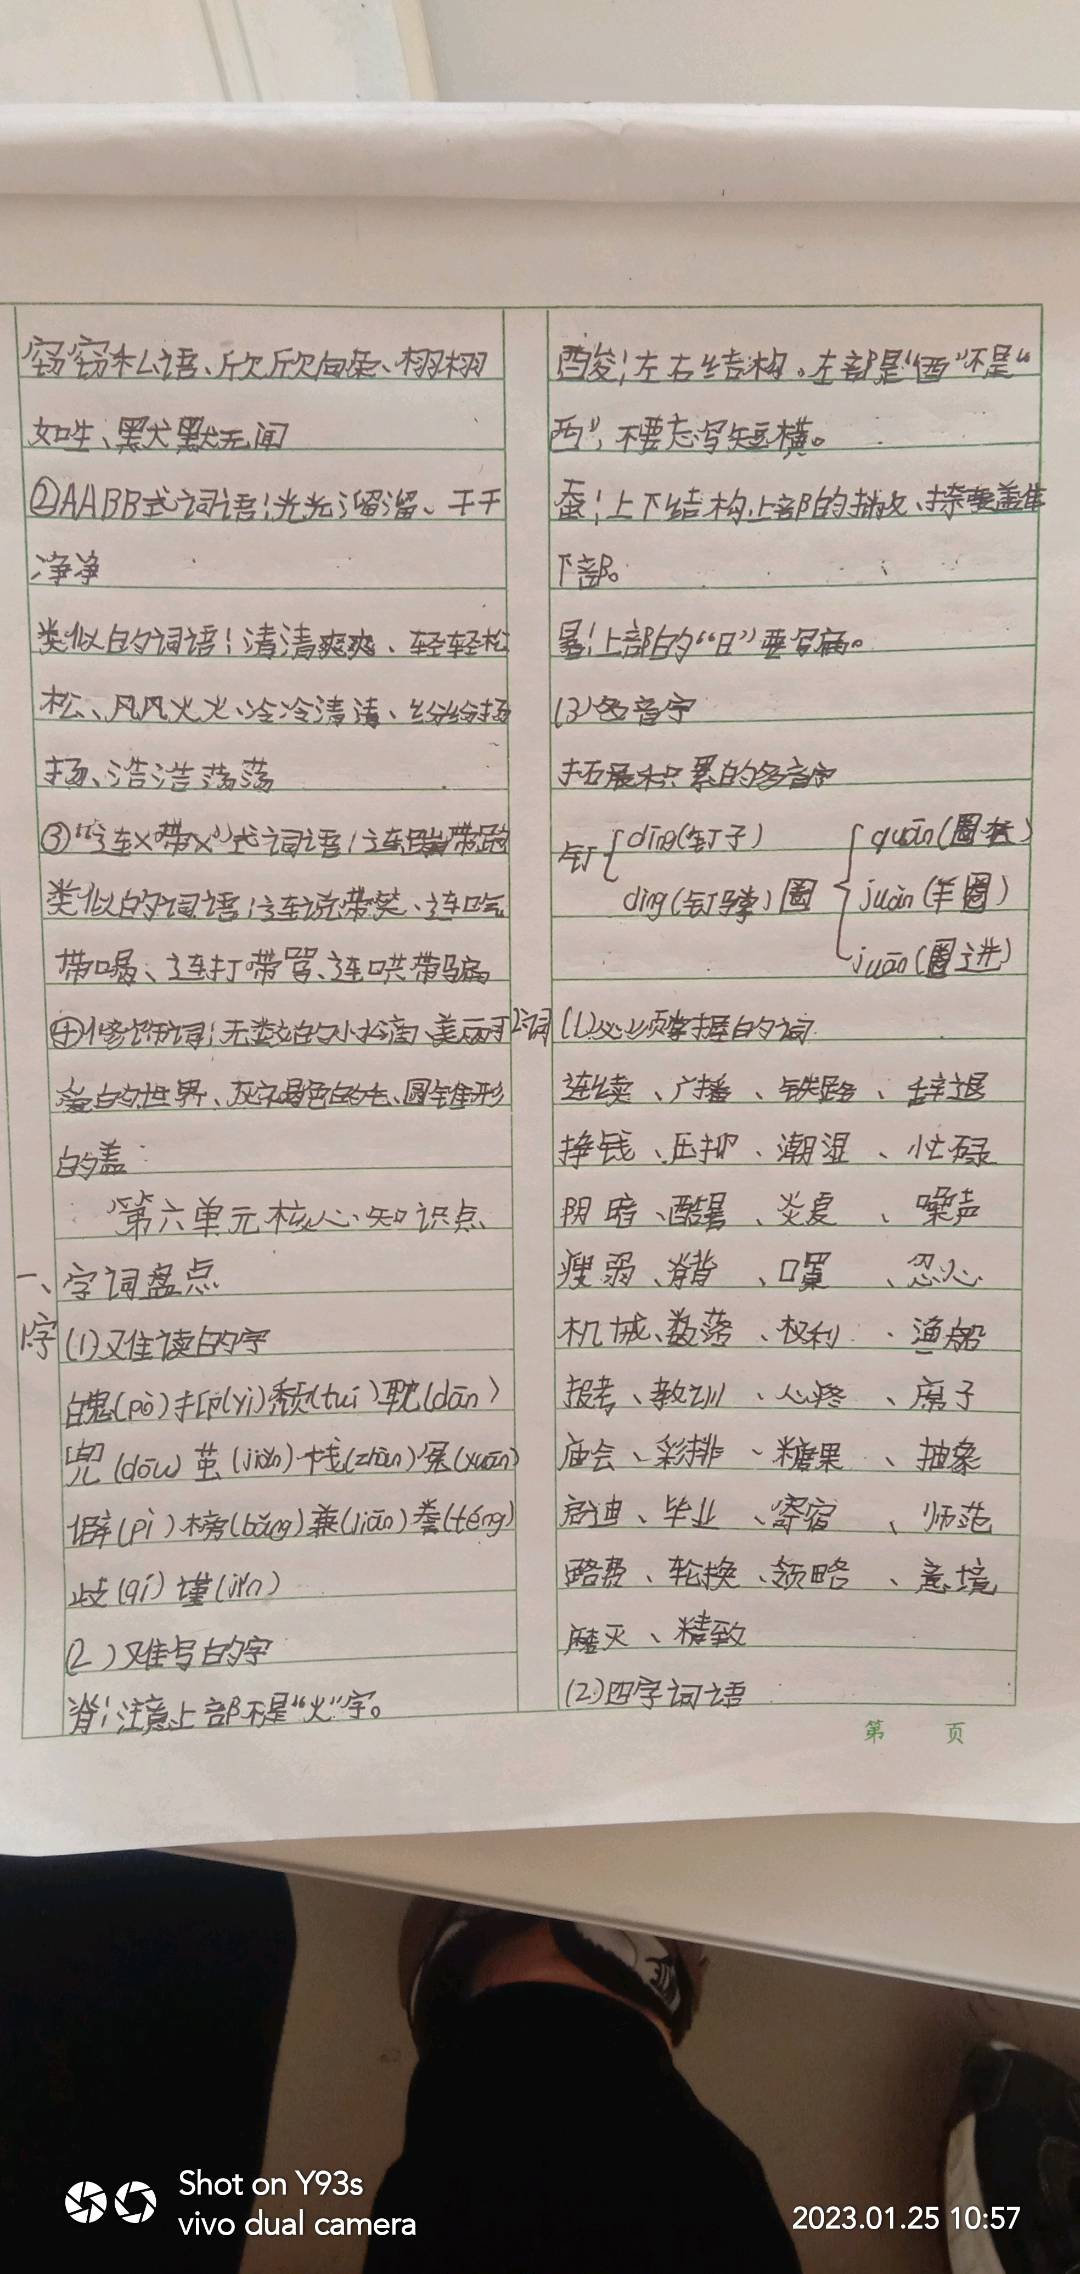 窃窃私语、欣欣向荣、栩栩
如生、默默无闻
②AABB式词语:光光溜溜、干干
净净
类似的词语:清清爽爽、轻轻松
松、风风火火、冷冷清清、纷纷扬
扬、浩浩荡荡
③“连×带×”式词语:连蹦带跑
类似的词语:连说带笑、连吃
带喝、连打带骂、连哄带骗
④修饰词:无数的小松菌、美丽可
爱的世界、灰褐色的毛、圆锥形
的盖
第六单元核心知识点
一、字词盘点
1.字
(1)难读的字
魄(pò)抑(yì)颓(tuí)耽(dān)
兜(dōu)茧(jiǎn)栈(zhàn)冤(xuān)
僻(pì)榜(bǎng)兼(jiān)誊(téng)
歧(qí)谨(jǐn)
(2)难写的字
脊:注意上部不是“火”字。
酸:左右结构。左部是“酉”不是“
西”,不要忘写短横。
蚕:上下结构,上部的撇、捺要盖住
下部。
暑:上部的“日”要写扁。
(3)多音字
拓展积累的多音字
钉 dīng(钉子)
dìng(钉弹)
圈 quān(圈套)
juàn(羊圈)
juān(圈进)
2.词
(1)必须掌握的词
连续、广播、铁路、辞退
挣钱、压抑、潮湿、忙碌
阴暗、酷暑、炎夏、噪声
瘦弱、脊背、口罩、忍心
机械、数落、权利、渔船
报考、教训、心疼、屑子
庙会、彩排、糖果、抽象
启迪、毕业、寄宿、师范
路费、轮换、领略、意境
磨灭、精致
(2)四字词语
第 页
Shot on Y93s
vivo dual camera
2023.01.25 10:57